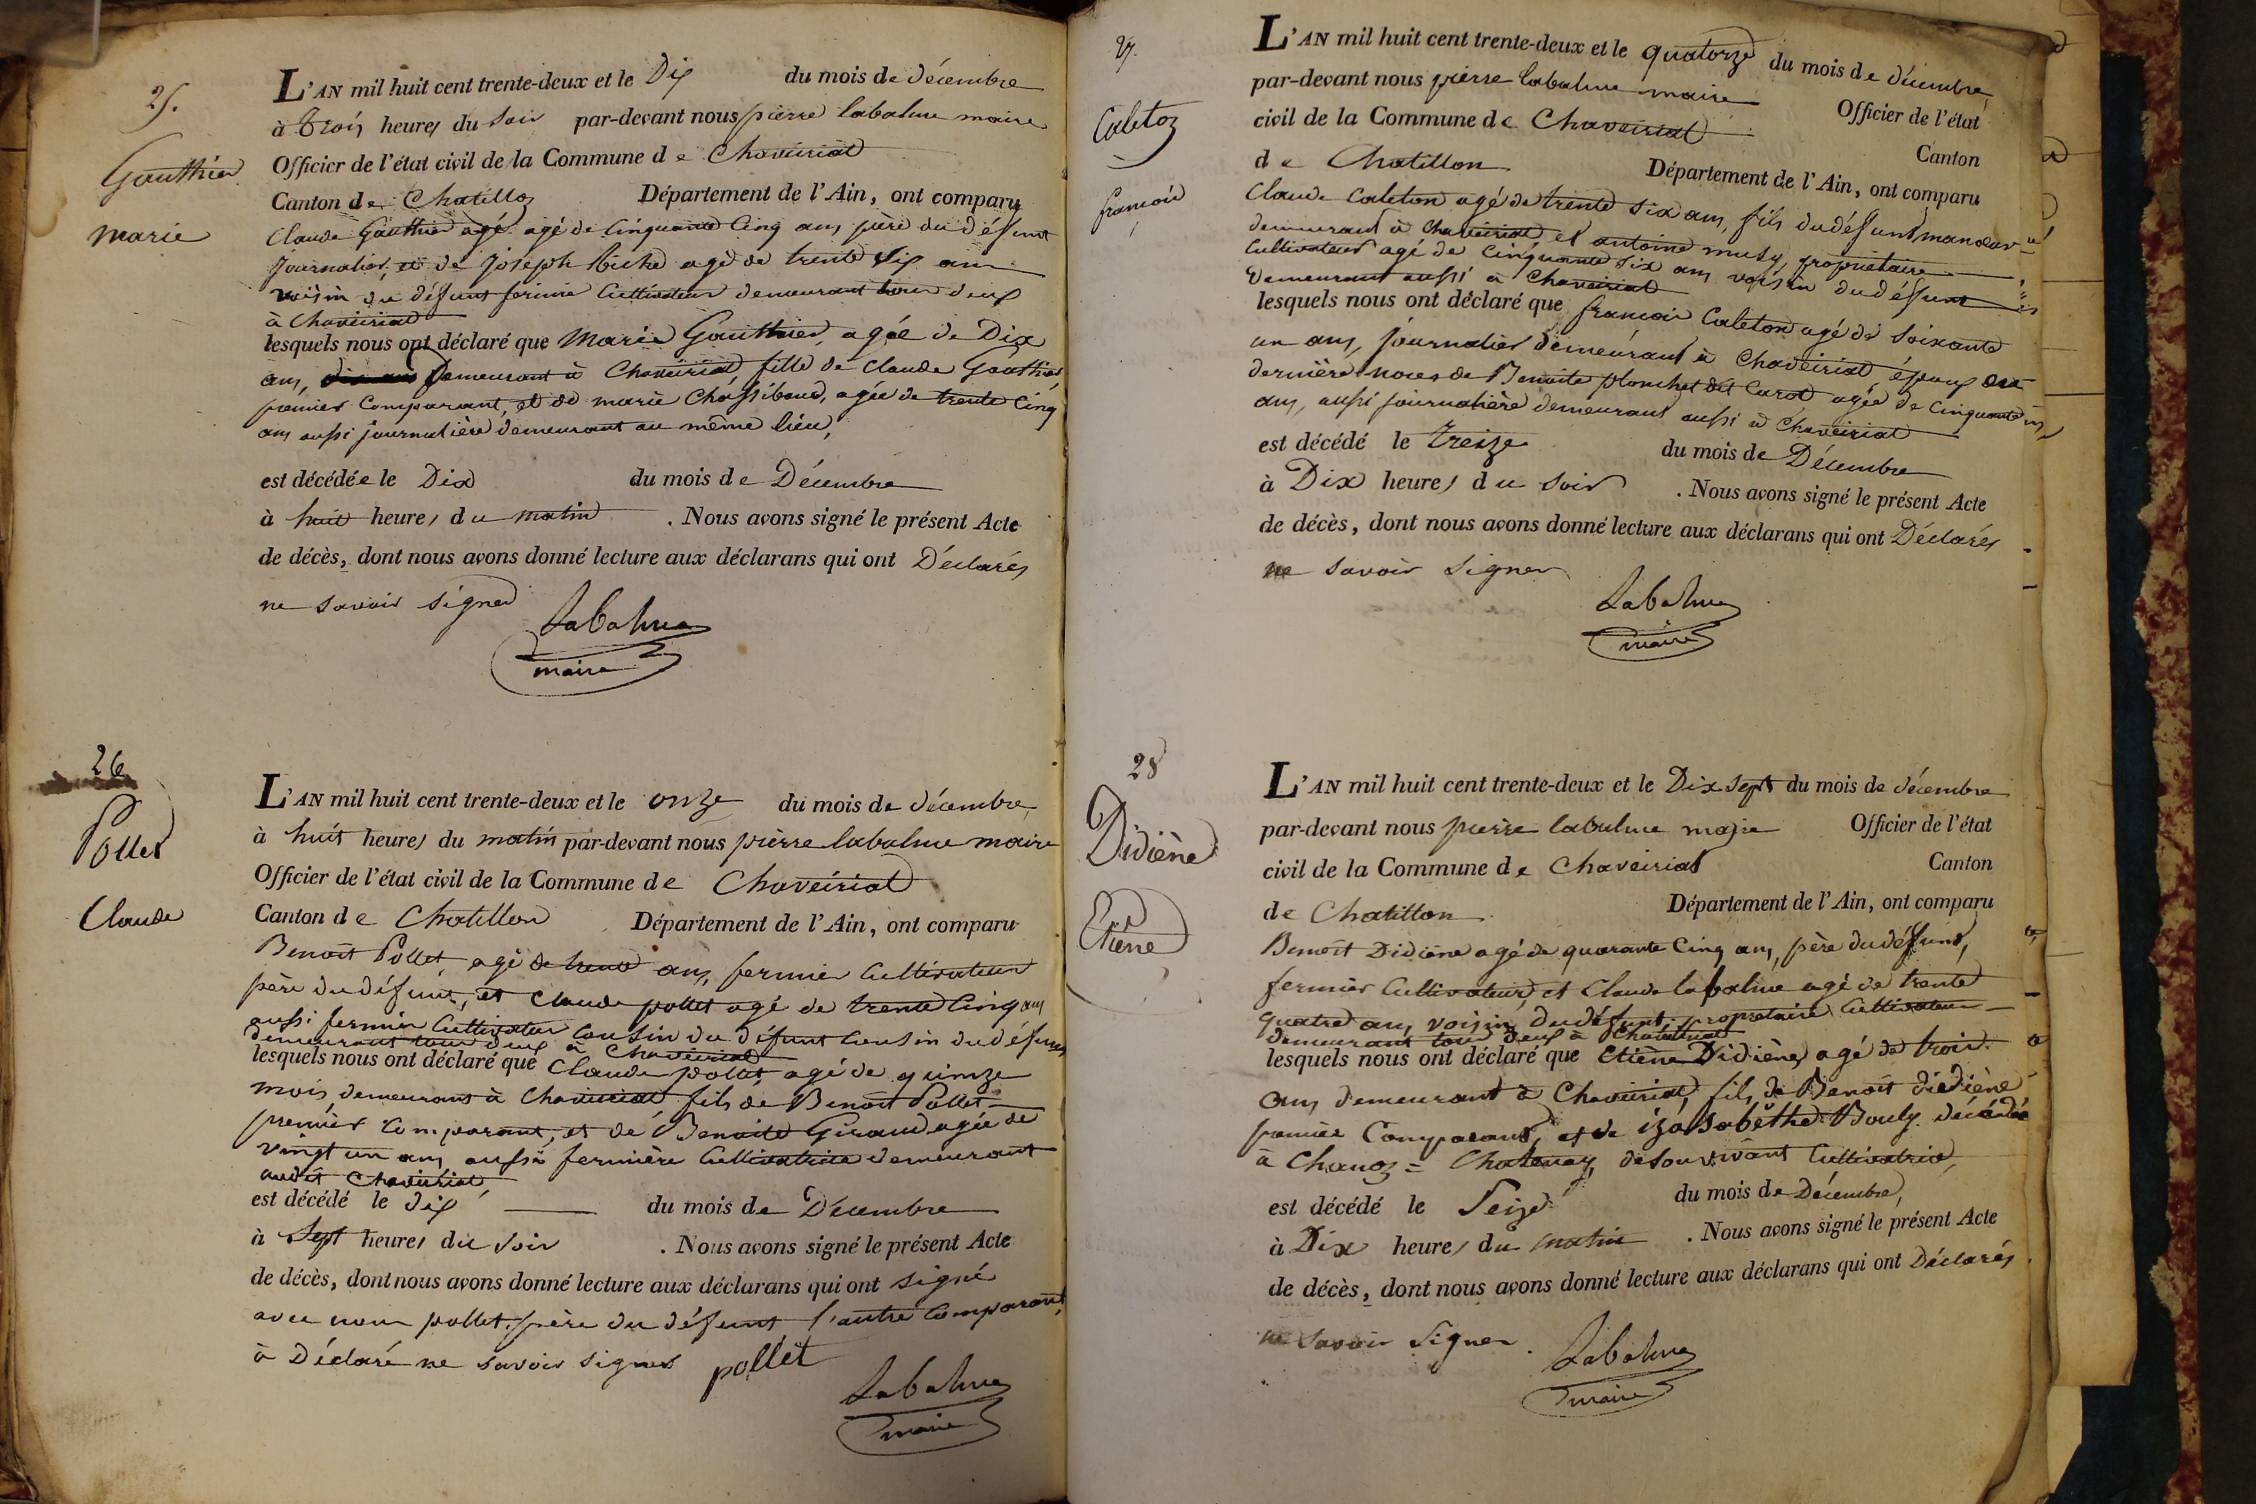 25.
Gauthier
marie
L'AN mil huit cent trente-deux et le Dix du mois de décembre
à trois heures du soir par-devant nous pierre labalme maire
Officier de l'état civil de la Commune de Chaveiriat
Canton de Chatillon Département de l'Ain, ont comparu
Claude Gauthier agé agé de Cinquante Cinq ans père du défunt
journalier, et de joseph Riche agé de trente six ans
voisin du défunt fermier Cultivateur demeurant tous deux
à Chaveiriat
lesquels nous ont déclaré que Marie Gauthier, agée de Dix
ans, demeurant à Chaveiriat fille de Claude Gauthier
premier Comparant, et de marie Chassiboud, agée de trente Cinq
ans aussi journalière demeurant au même lieu,
est décédée le Dix du mois de Décembre
à huit heures du matin . Nous avons signé le présent Acte
de décès, dont nous avons donné lecture aux déclarans qui ont Déclarés
ne savoir signer
Labalme
maire
26
Pollet
Claude
L'AN mil huit cent trente-deux et le onze du mois de décembre,
à huit heures du matin par-devant nous pierre labalme maire
Officier de l'état civil de la Commune de Chaveiriat
Canton de Chatillon Département de l'Ain, ont comparu
Benoit Pollet, agé de trente ans, fermier Cultivateur
père du défunt, et Claude pollet agé de trente Cinq ans
aussi fermier Cultivateur Cousin du défunt Cousin du défunt
demeurant tous deux à Chaveiriat
lesquels nous ont déclaré que Claude pollet agé de quinze
mois, demeurant à Chaveiriat fils de Benoit Pollet
premier Comparant, et de Benoite Giraud agée de
vingt un ans, aussi fermière Cultivatrice demeurant
audit Chaveiriat,
est décédé le dix du mois de Décembre
à Sept heures du soir . Nous avons signé le présent Acte
de décès, dont nous avons donné lecture aux déclarans qui ont signé
avec nous pollet, père du défunt l'autre Comparant,
à Déclaré ne savoir signer pollet
Labalme
maire
27.
Caleton
francois
L'AN mil huit cent trente-deux et le quatorze du mois de décembre,
par-devant nous pierre labalme maire Officier de l'état
civil de la Commune de Chaveiriat Canton
de Chatillon Département de l'Ain, ont comparu
Claude Caleton agé de trente six ans, fils du défunt manoeuvre
demeurant à Chaveiriat et antoine musy, propriétaire
Cultivateur agé de Cinquante six ans voisin du défunt
demeurant aussi à Chaveiriat
lesquels nous ont déclaré que francois Caleton agé de soixante
un ans, journalier demeurant à Chaveiriat époux en
dernière noces de Benoite planchet dit Carot agée de Cinquante
ans, aussi journalière demeurant aussi à Chaveiriat
est décédé le treize du mois de Décembre
à Dix heures du soir . Nous avons signé le présent Acte
de décès, dont nous avons donné lecture aux déclarans qui ont Déclarés
ne savoir signer
Labalme
maire
28
Didiène
Etiène
L'AN mil huit cent trente-deux et le Dix sept du mois de décembre
par-devant nous pierre labalme maire Officier de l'état
civil de la Commune de Chaveiriat Canton
de Chatillon Département de l'Ain, ont comparu
Benoit Didiène agé de quarante Cinq ans, père du défunt,
fermier Cultivateur, et Claude labalme agé de trente
quatre ans, voisin, du défunt, propriétaire Cultivateur
demeurant tous deux à Chaveiriat
lesquels nous ont déclaré que Etiène Didiène, agé de trois
ans demeurant à Chaveiriat, fils de Benoit didiène
premier Comparant, et de izasabéthe Bouly décédée
à Chanoz = Chatenay, de son vivant Cultivatrice,
est décédé le Seize du mois de Décembre,
à Dix heures du matin . Nous avons signé le présent Acte
de décès, dont nous avons donné lecture aux déclarans qui ont Déclarés
ne savoir signer.
Labalme
maire